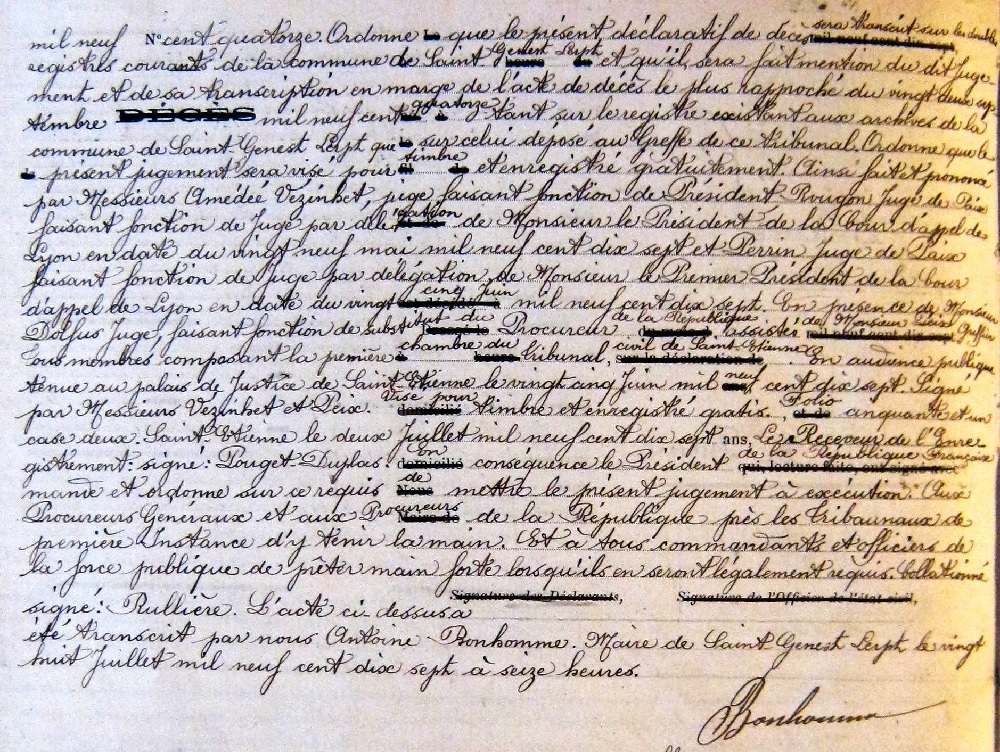 mil neuf N° cent quatorze. Ordonne que le présent déclaratif de décès sera transcrit sur les doubles
registres courants de la commune de Saint Genest Lerpt et qu'il sera fait mention du dit Juge
ment et de sa transcription en marge de l'acte de décès le plus rapproché du vingt deux sep
tembre DÉCÈS mil neuf cent quatorze étant sur le registre existant aux archives de la
commune de Saint-Genest Lerpt que sur celui déposé au Greffe de ce tribunal. Ordonne que le
présent jugement sera visé pour timbre et enregistré gratuitement. Ainsi fait et prononcé
par Messieurs Amédée Vézinhet, juge faisant fonction de Président Rougon Juge de Paix
faisant fonction de Juge par délégation de Monsieur le Président de la Cour d'appel de
Lyon en date du vingt neuf mai mil neuf cent dix sept et Perrin Juge de Paix
faisant fonction de Juge par délégation de Monsieur le Premier Président de la Cour
d'appel de Lyon en date du vingt cinq Juin mil neuf cent dix sept. En présence de Monsieur
Dolfus Juge, faisant fonction de substitut du Procureur de la République. assistés de Monsieur Peix Greffier
Tous membres composant la première chambre du tribunal, civil de Saint-Etienne En audience publique
tenue au palais de Justice de Saint-Etienne le vingt cinq Juin mil neuf cent dix sept. Signé
par Messieurs Vézinhet et Peix. Visé pour timbre et enregistré gratis., Folio cinquante et un
case deux. Saint-Etienne le deux Juillet mil neuf cent dix sept ans, Le Receveur de l'Enre-
gistrement: signé: Pouget-Duplas. En conséquence le Président de la République Française
mande et ordonne sur ce requis de mettre le présent jugement à exécution. Aux
Procureurs Généraux et aux Procureurs de la République près les Tribaunaux de
première Instance d'y tenir la main. Et à tous commandants et officiers de
la force publique de prêter main forte lorsqu'ils en seront légalement requis. Collationné
Signature des Déclarants, Signature de l'Officier de l'état civil,
signé: Rullière. L'acte ci-dessus a
été transcrit par nous Antoine Bonhomme. Maire de Saint Genest Lerpt le vingt
huit Juillet mil neuf cent dix sept à seize heures.
Bonhomme